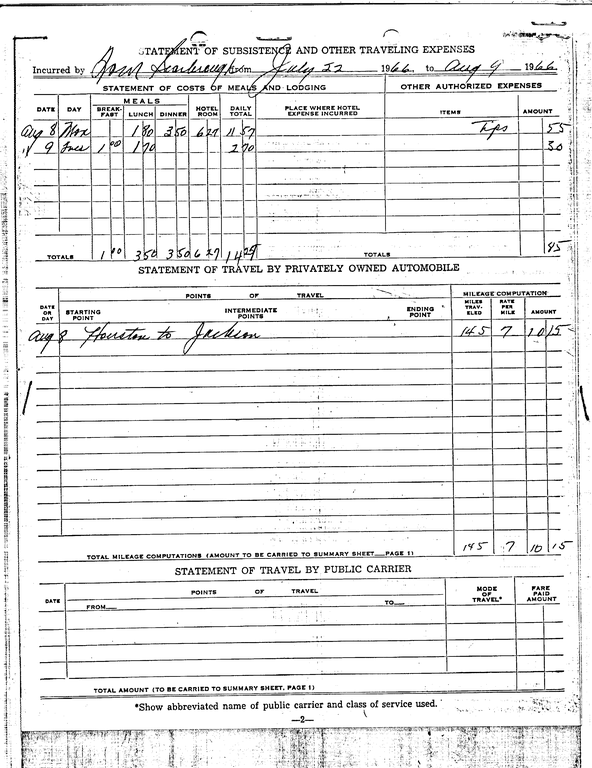 STATEMENT OF SUBSISTENCE AND OTHER TRAVELING EXPENSES
Incurred by Tom Scarbrough from July 22 1966 to Aug 9 1966
STATEMENT OF COSTS OF MEALS AND LODGING OTHER AUTHORIZED EXPENSES
MEALS
DATE DAY BREAK-FAST LUNCH DINNER HOTEL ROOM DAILY TOTAL PLACE WHERE HOTEL EXPENSE INCURRED ITEMS AMOUNT
Aug 8 Mon 1 80 3 50 6 27 11 57 Tips 55
" 9 Tues 1 00 1 70 2 70 30
TOTALS 1 00 3 50 3 50 6 27 14 27 TOTALS 85
STATEMENT OF TRAVEL BY PRIVATELY OWNED AUTOMOBILE
POINTS OF TRAVEL MILEAGE COMPUTATION
DATE OR DAY STARTING POINT INTERMEDIATE POINTS ENDING POINT MILES TRAV-ELED RATE PER MILE AMOUNT
Aug 8 Houston to Jackson 145 7 10 15
TOTAL MILEAGE COMPUTATIONS (AMOUNT TO BE CARRIED TO SUMMARY SHEET PAGE 1) 145 7 10 15
STATEMENT OF TRAVEL BY PUBLIC CARRIER
DATE POINTS OF TRAVEL MODE OF TRAVEL* FARE PAID AMOUNT
FROM TO
TOTAL AMOUNT (TO BE CARRIED TO SUMMARY SHEET, PAGE 1)
*Show abbreviated name of public carrier and class of service used.
—2—